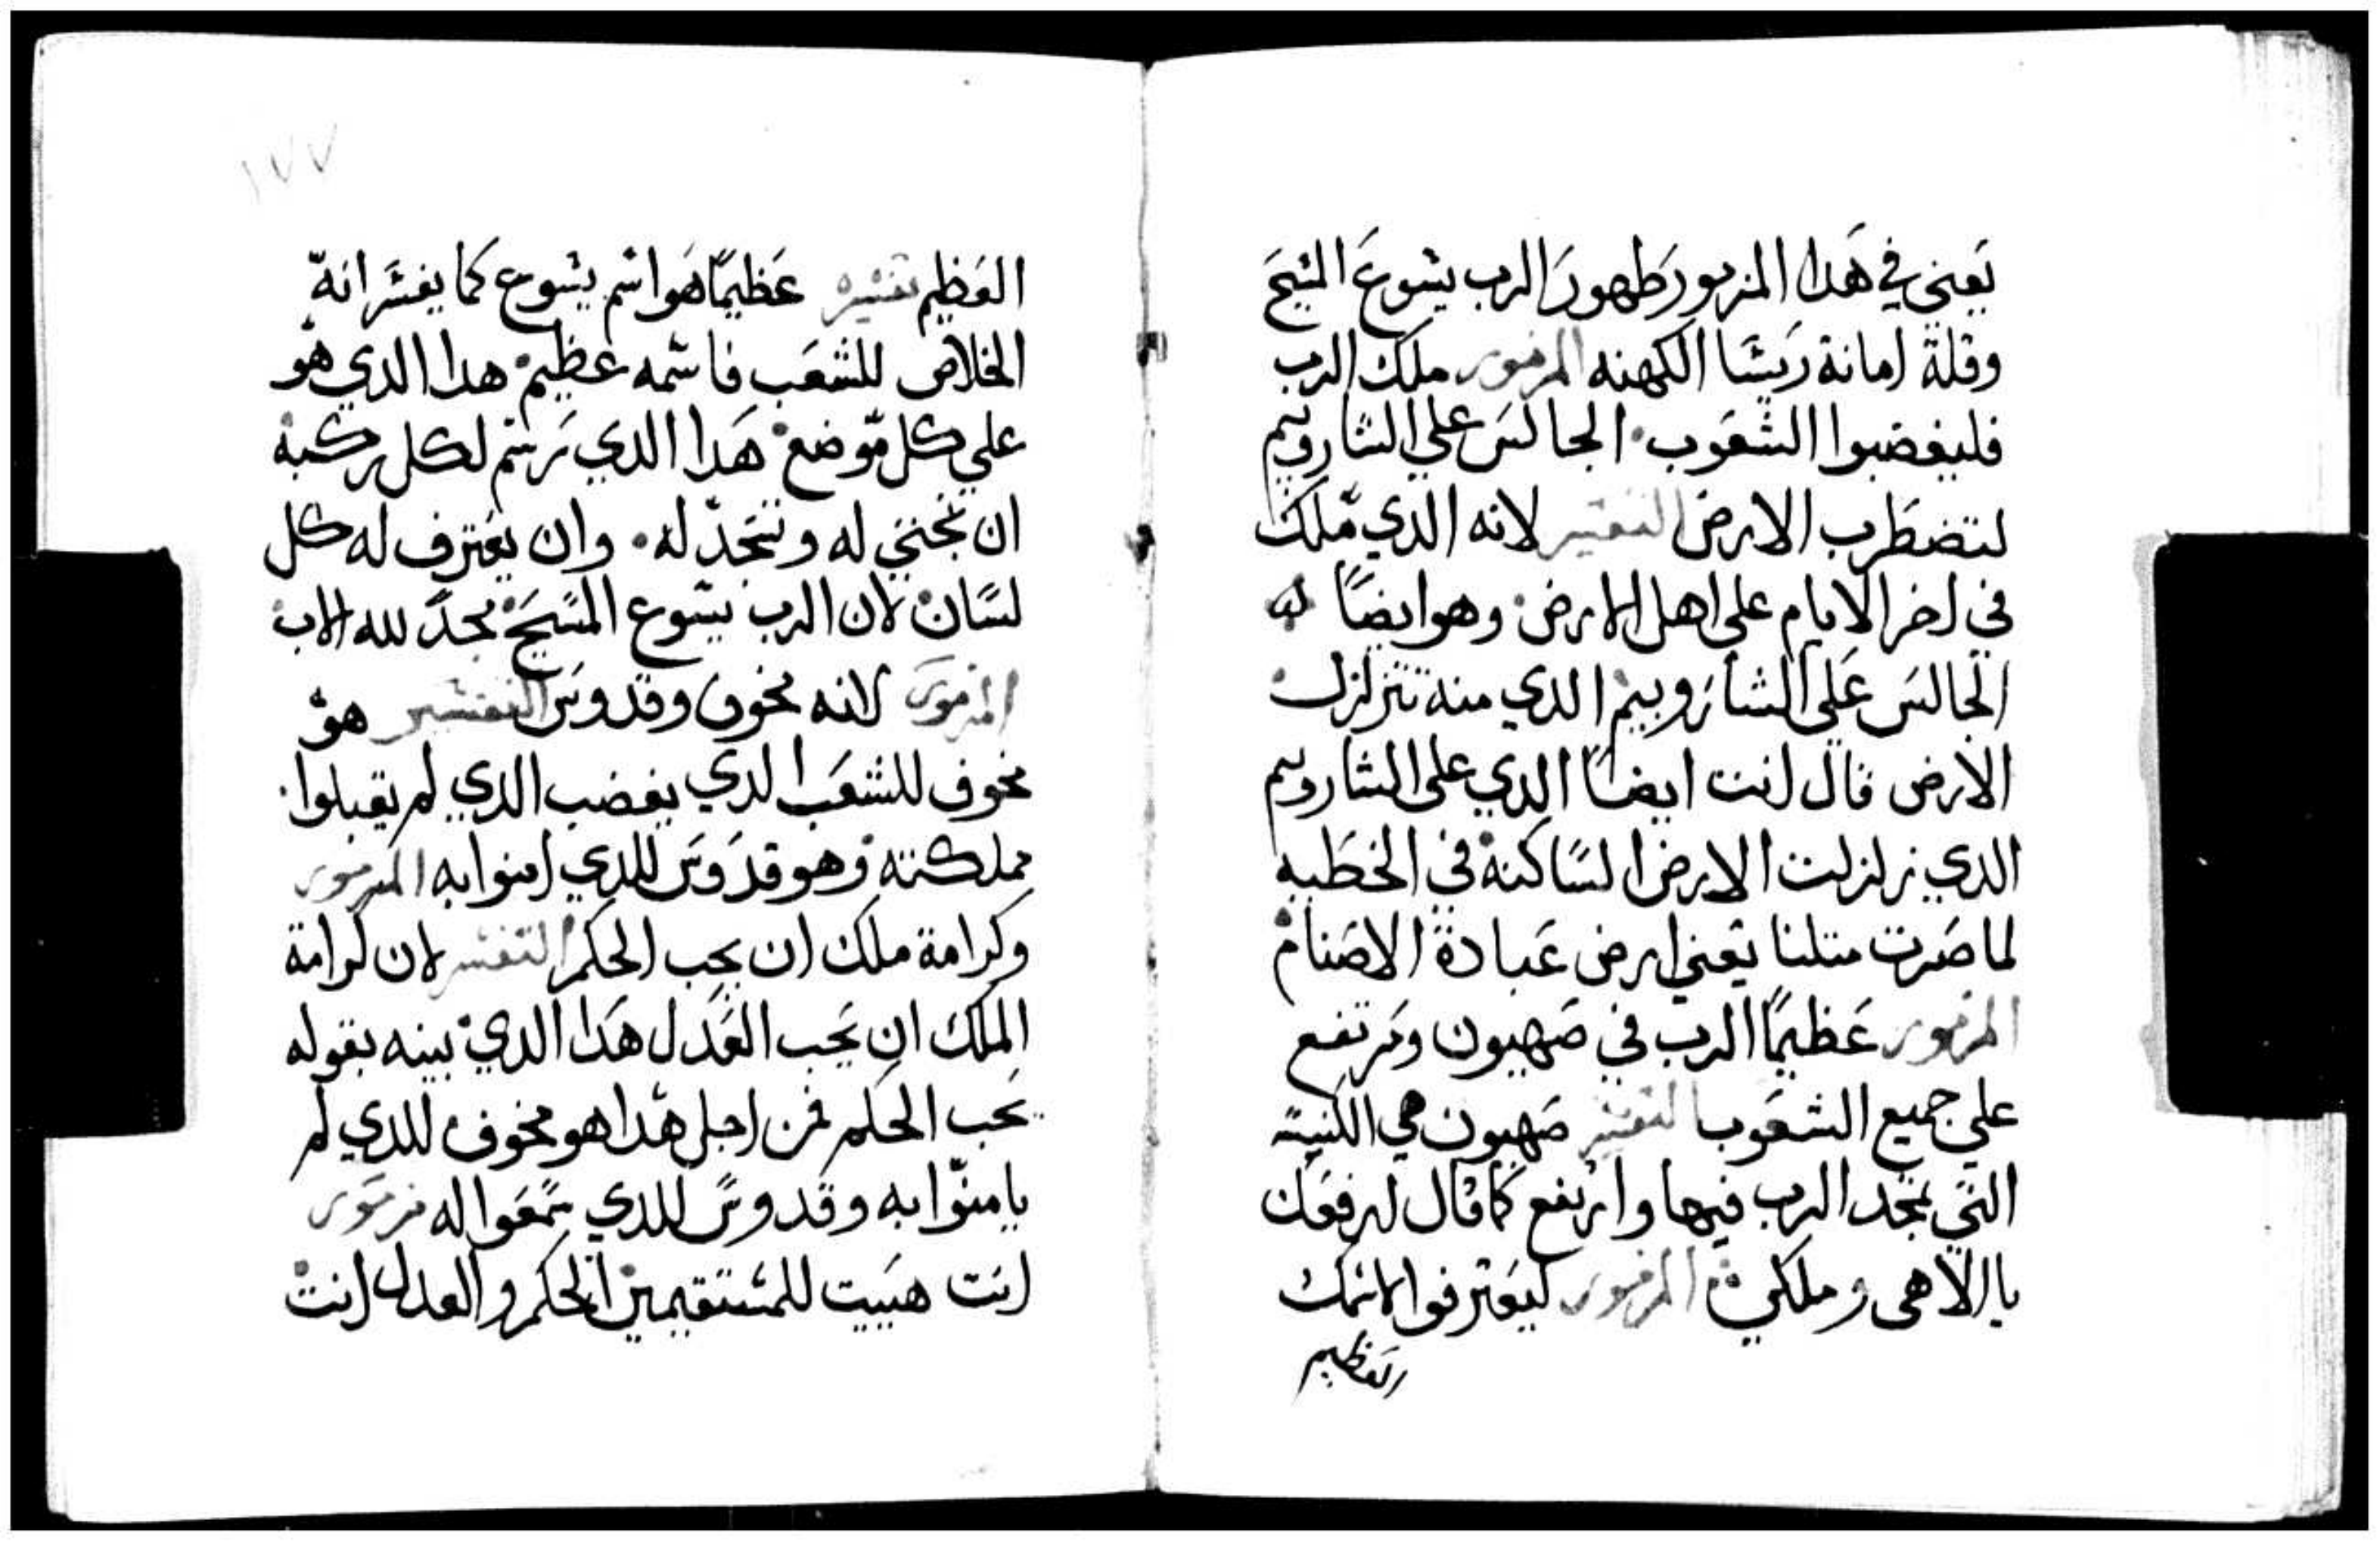 يعني في هدا المزمور طهور الرب يشوع المسيح
وقلة امانة ريسا الكهنه المزمور ملك الرب
فليغضبوا الشعوب الجالس علي الشاروبيم
لتضطرب الارض التفسير لانه الدي ملك
في اخر الايام على اهل الارض وهو ايضا
الجالس علي الشاروبيم الدي منه تتزلزل
الارض قال انت ايضا الدي على الشاروبيم
الدي زلزلت الارض الساكنة في الخطيه
لما صرت متلنا يعني ارض عبادة الاصنام
المزمور عظيما الرب في صهيون ومرتفع
علي جميع الشعوب التفسير صهيون هي الكنيسه
التي تمجد الرب فيها وارتفع كما قال لرفعك
يا الاهى وملكي المزمور ليعترفوا لاسمك
العظيم
١٧٧
العظيم تفسيره عظيما هو اسم يسوع كما يفسر انه
الخلاص للشعب فاسمه عظيم هدا الدي هو
علي كل موضع هدا الدي رسم لكل ركبة
ان تجتني له وتسجد له وان يعترف له كل
لسان لان الرب يسوع المسيح مجد لله الاب
المزمور لانه مخوف وقدوس التفسير هو
مخوف للشعب الدي يغضب الدي لم يقبلوا
مملكته وهو قدوس للدي امنوا به المزمور
وكرامة ملك ان يحب الحكم التفسير لان كرامة
الملك ان يحب العدل هدا الدي بينه بقوله
يحب الحكم فمن اجل هدا هو مخوف للدي لم
يامنوا به وقدوس للدي سمعوا له مزمور
انت هييت للمستقيمين الحكم والعدل انت